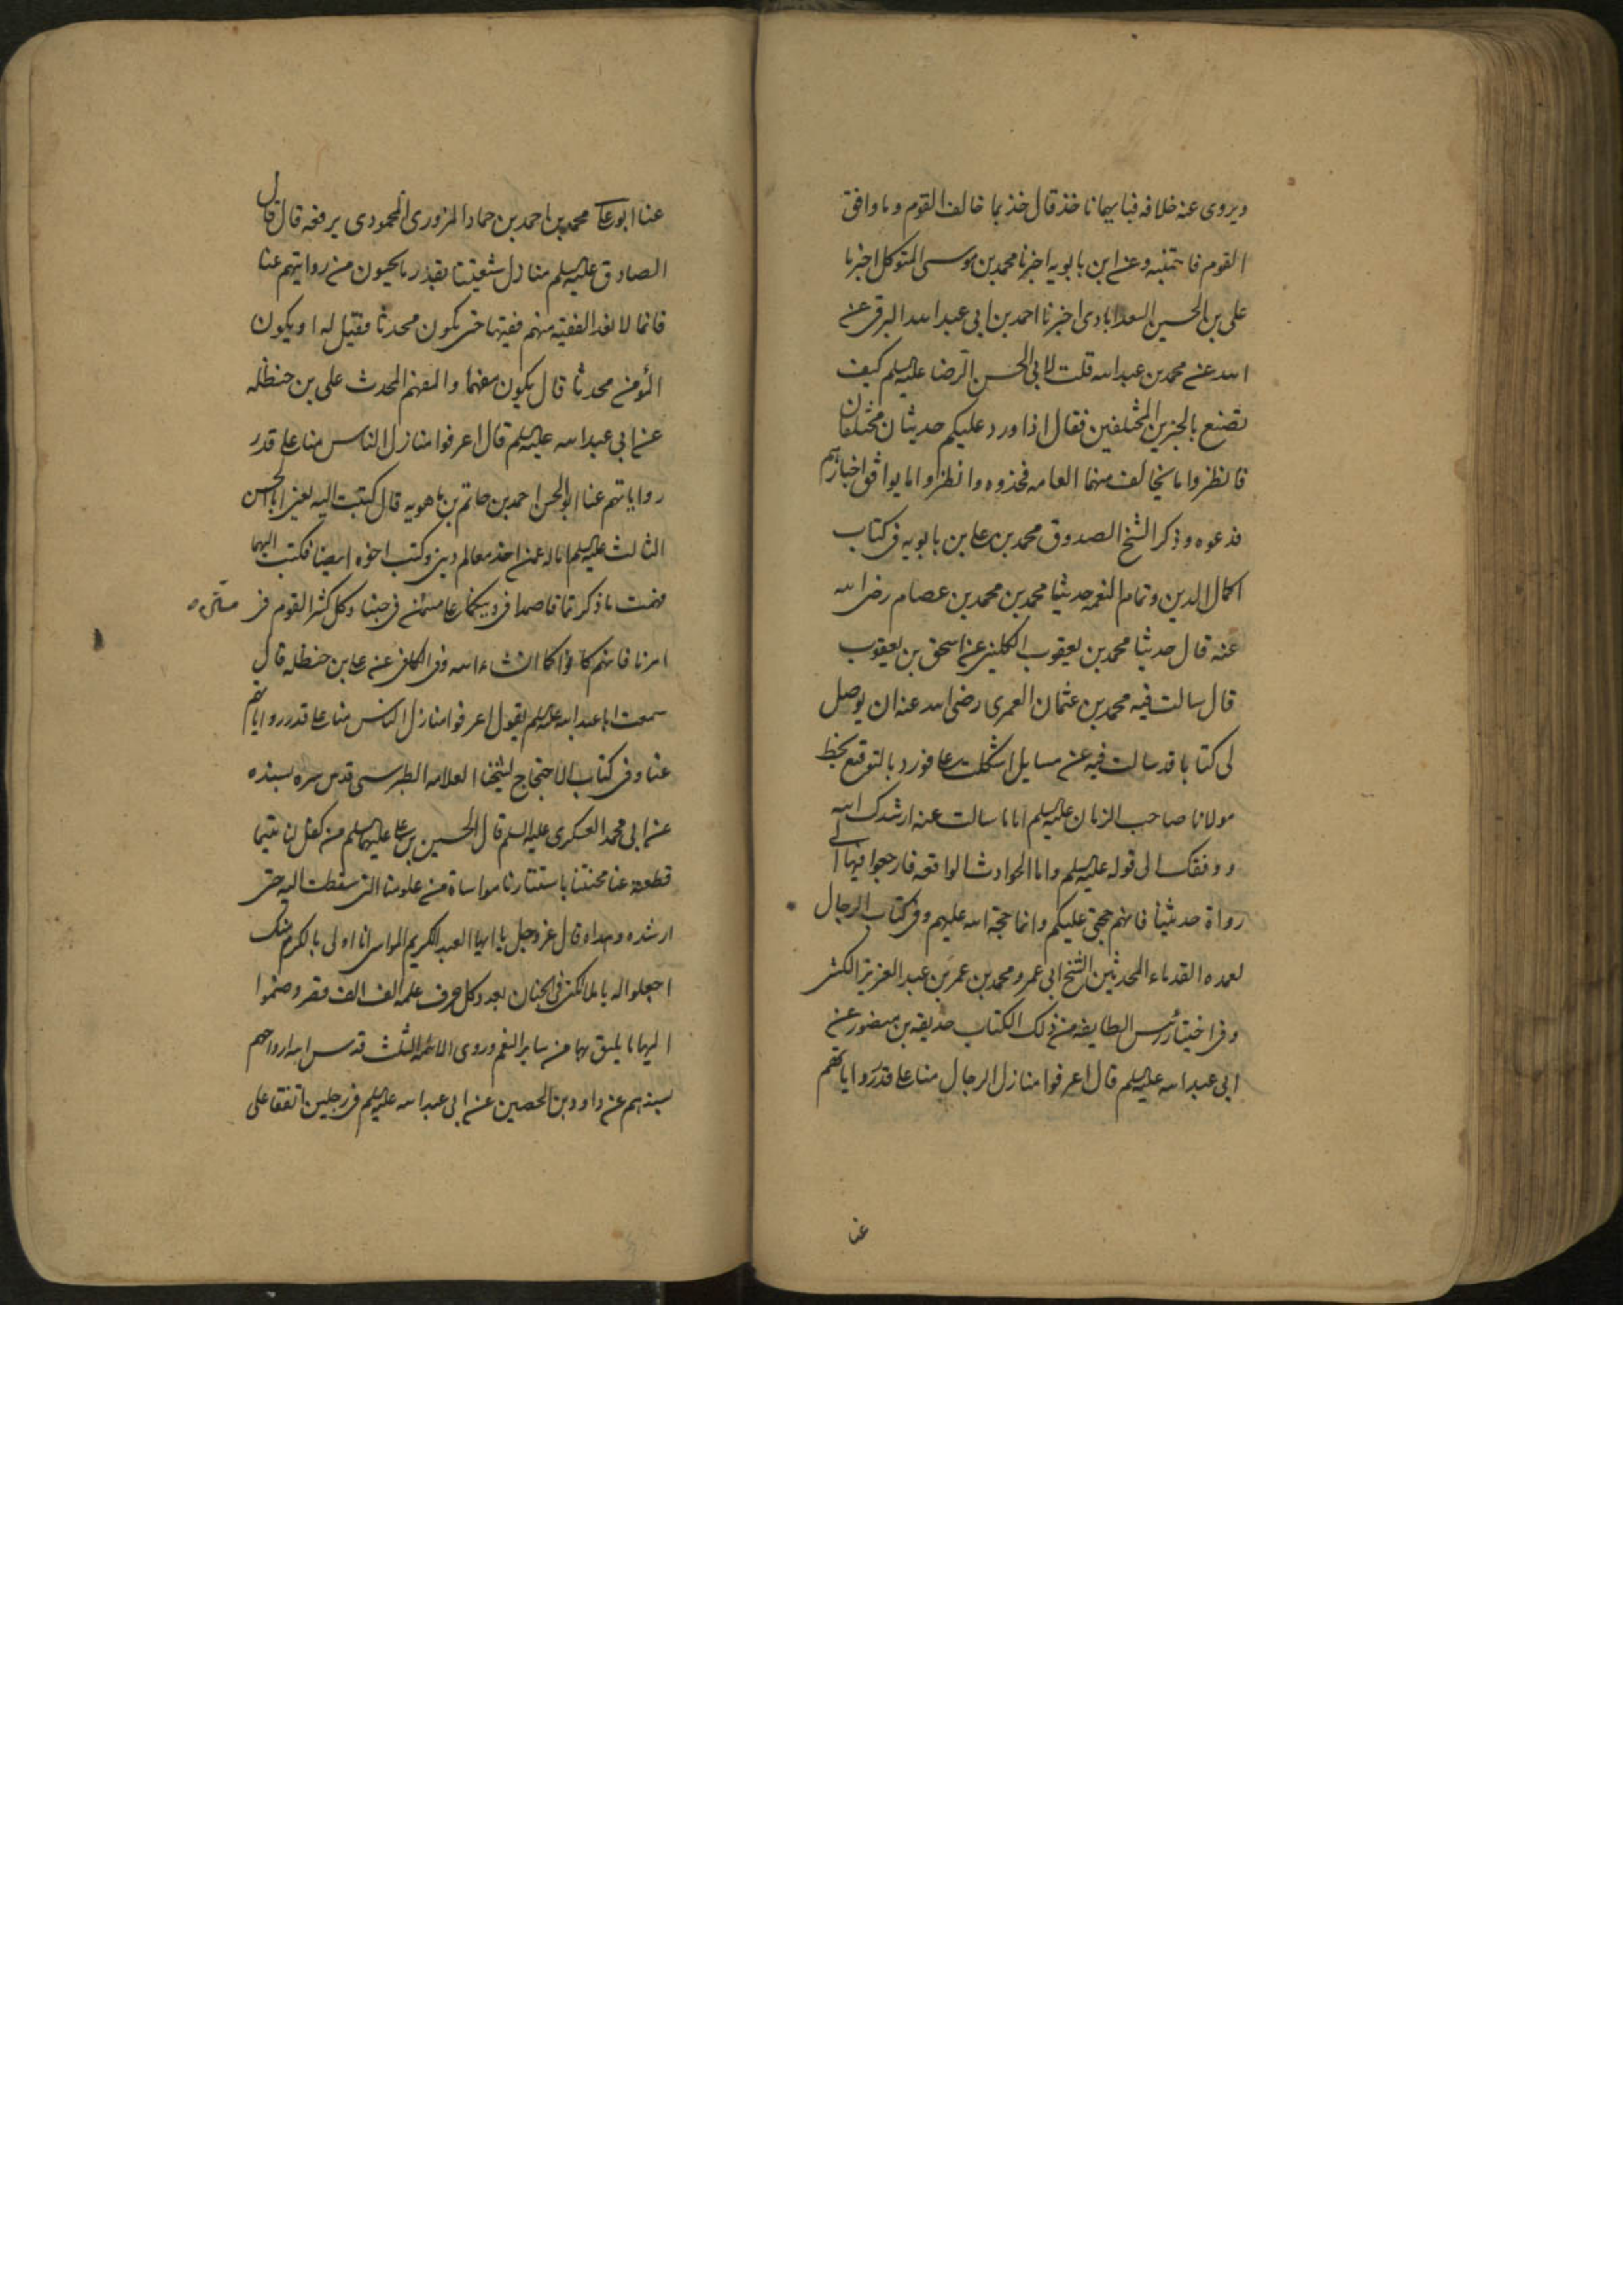 ويروى عنه خلافه فبايهما ناخذ قال خذ بما خالف القوم وما وافق
القوم فاجتنبه وعن ابن بابويه اخبرنا محمد بن موسى المتوكل اخبرنا
على بن الحسين السعدابادى اخبرنا احمد بن ابى عبد الله البرقى عن
ابيه عن محمد بن عبد الله قلت لابى الحسن الرضا عليه السلم كيف
نصنع بالخبرين المختلفين فقال اذا ورد عليكم حديثان مختلفان
فانظروا ما يخالف منهما العامه فخذوه وانظروا ما يوافق اخبارهم
فدعوه وذكر الشيخ الصدوق محمد بن على بن بابويه فى كتاب
اكمال الدين وتمام النعمه حديثا محمد بن محمد بن عصام رضى الله
عنه قال حدثنا محمد بن يعقوب الكلينى عن اسحق بن يعقوب
قال سالت فيه محمد بن عثمان العمرى رضى الله عنه ان يوصل
لى كتابا قد سالت فيه عن مسايل اشكلت على فورد بالتوقيع بخط
مولانا صاحب الزمان عليه السلم اما ما سالت عنه ارشدك الله
ووفقك الى قوله عليه السلم واما الحوادث الواقعه فارجعوا فيها الى
رواة حديثنا فانهم حجتى عليكم وانا حجة الله عليهم وفى كتاب الرجال
لعمده القدماء المحدثين الشيخ ابى عمرو محمد بن عمر بن عبد العزيز الكشى
وفى اختيار رئيس الطايفه من ذلك الكتاب حذيفه بن منصور عن
ابى عبد الله عليه السلم قال اعرفوا منازل الرجال منا على قدر رواياتهم
عنا
عنا ابو على محمد بن احمد بن حماد المروزى المحمودى يرفعه قال قال
الصادق عليه السلم منازل شيعتنا بقدر ما يحسنون من روايتهم عنا
فانا لا نعد الفقيه منهم فقيها حتى يكون محدثا فقيل له او يكون
المؤمن محدثا قال يكون مفهما والمفهم المحدث على بن حنظله
عن ابى عبد الله عليه السلم قال اعرفوا منازل الناس منا على قدر
رواياتهم عنا ابو الحسن احمد بن حاتم بن ماهويه قال كتبت اليه يعنى ابا الحسن
الثالث عليه السلم اساله عمن اخذ معالم دينى وكتب اخوه ايضا فكتب اليهما
فهمت ما ذكرتما فاصمدا فى دينكما على مستن فى حبنا وكل كثير القدم فى
امرنا فانهم كافوا كما انشاء الله وفى الكافى عن على بن حنظله قال
سمعت ابا عبد الله عليه السلم يقول اعرفوا منازل الناس منا على قدر رواياتهم
عنا وفى كتاب الاحتجاج لشيخنا العلامه الطبرسى قدس سره بسنده
عن ابى محمد العسكرى عليه السلم قال الحسين بن على عليهما السلم من كفل لنا يتيما
قطعته عنا محنتنا باستتارنا مواساة من علومنا التى سقطت اليه حتى
ارشده وهداه قال عز وجل يا ايها العبد الكريم المواسى انا اولى بالكرم منك
اجعلوا له يا ملائكتى فى الجنان بعدد كل حرف علمه الف الف قصر وضموا
اليها ما يليق بها من ساير النعم وروى الائمه الثلث قدس الله ارواحهم
بسندهم عن داود بن الحصين عن ابى عبد الله عليه السلم فى رجلين اتفقا على